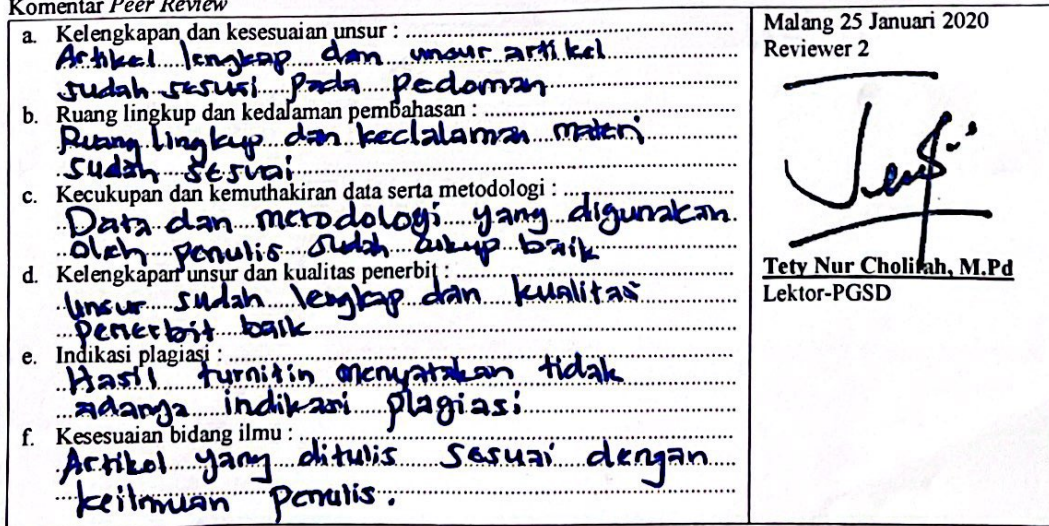 Komentar Peer Review
a. Kelengkapan dan kesesuaian unsur :
Artikel lengkap dan unsur artikel
sudah sesuai pada pedoman
b. Ruang lingkup dan kedalaman pembahasan :
Ruang lingkup dan kedalaman materi
sudah sesuai
c. Kecukupan dan kemuthakiran data serta metodologi :
Data dan metodologi yang digunakan
oleh penulis sudah cukup baik
d. Kelengkapan unsur dan kualitas penerbit :
Unsur sudah lengkap dan kualitas
penerbit baik
e. Indikasi plagiasi :
Hasil turnitin menyatakan tidak
adanya indikasi plagiasi
f. Kesesuaian bidang ilmu :
Artikel yang ditulis sesuai dengan
keilmuan penulis.
Malang 25 Januari 2020
Reviewer 2
Tety Nur Cholifah, M.Pd
Lektor-PGSD